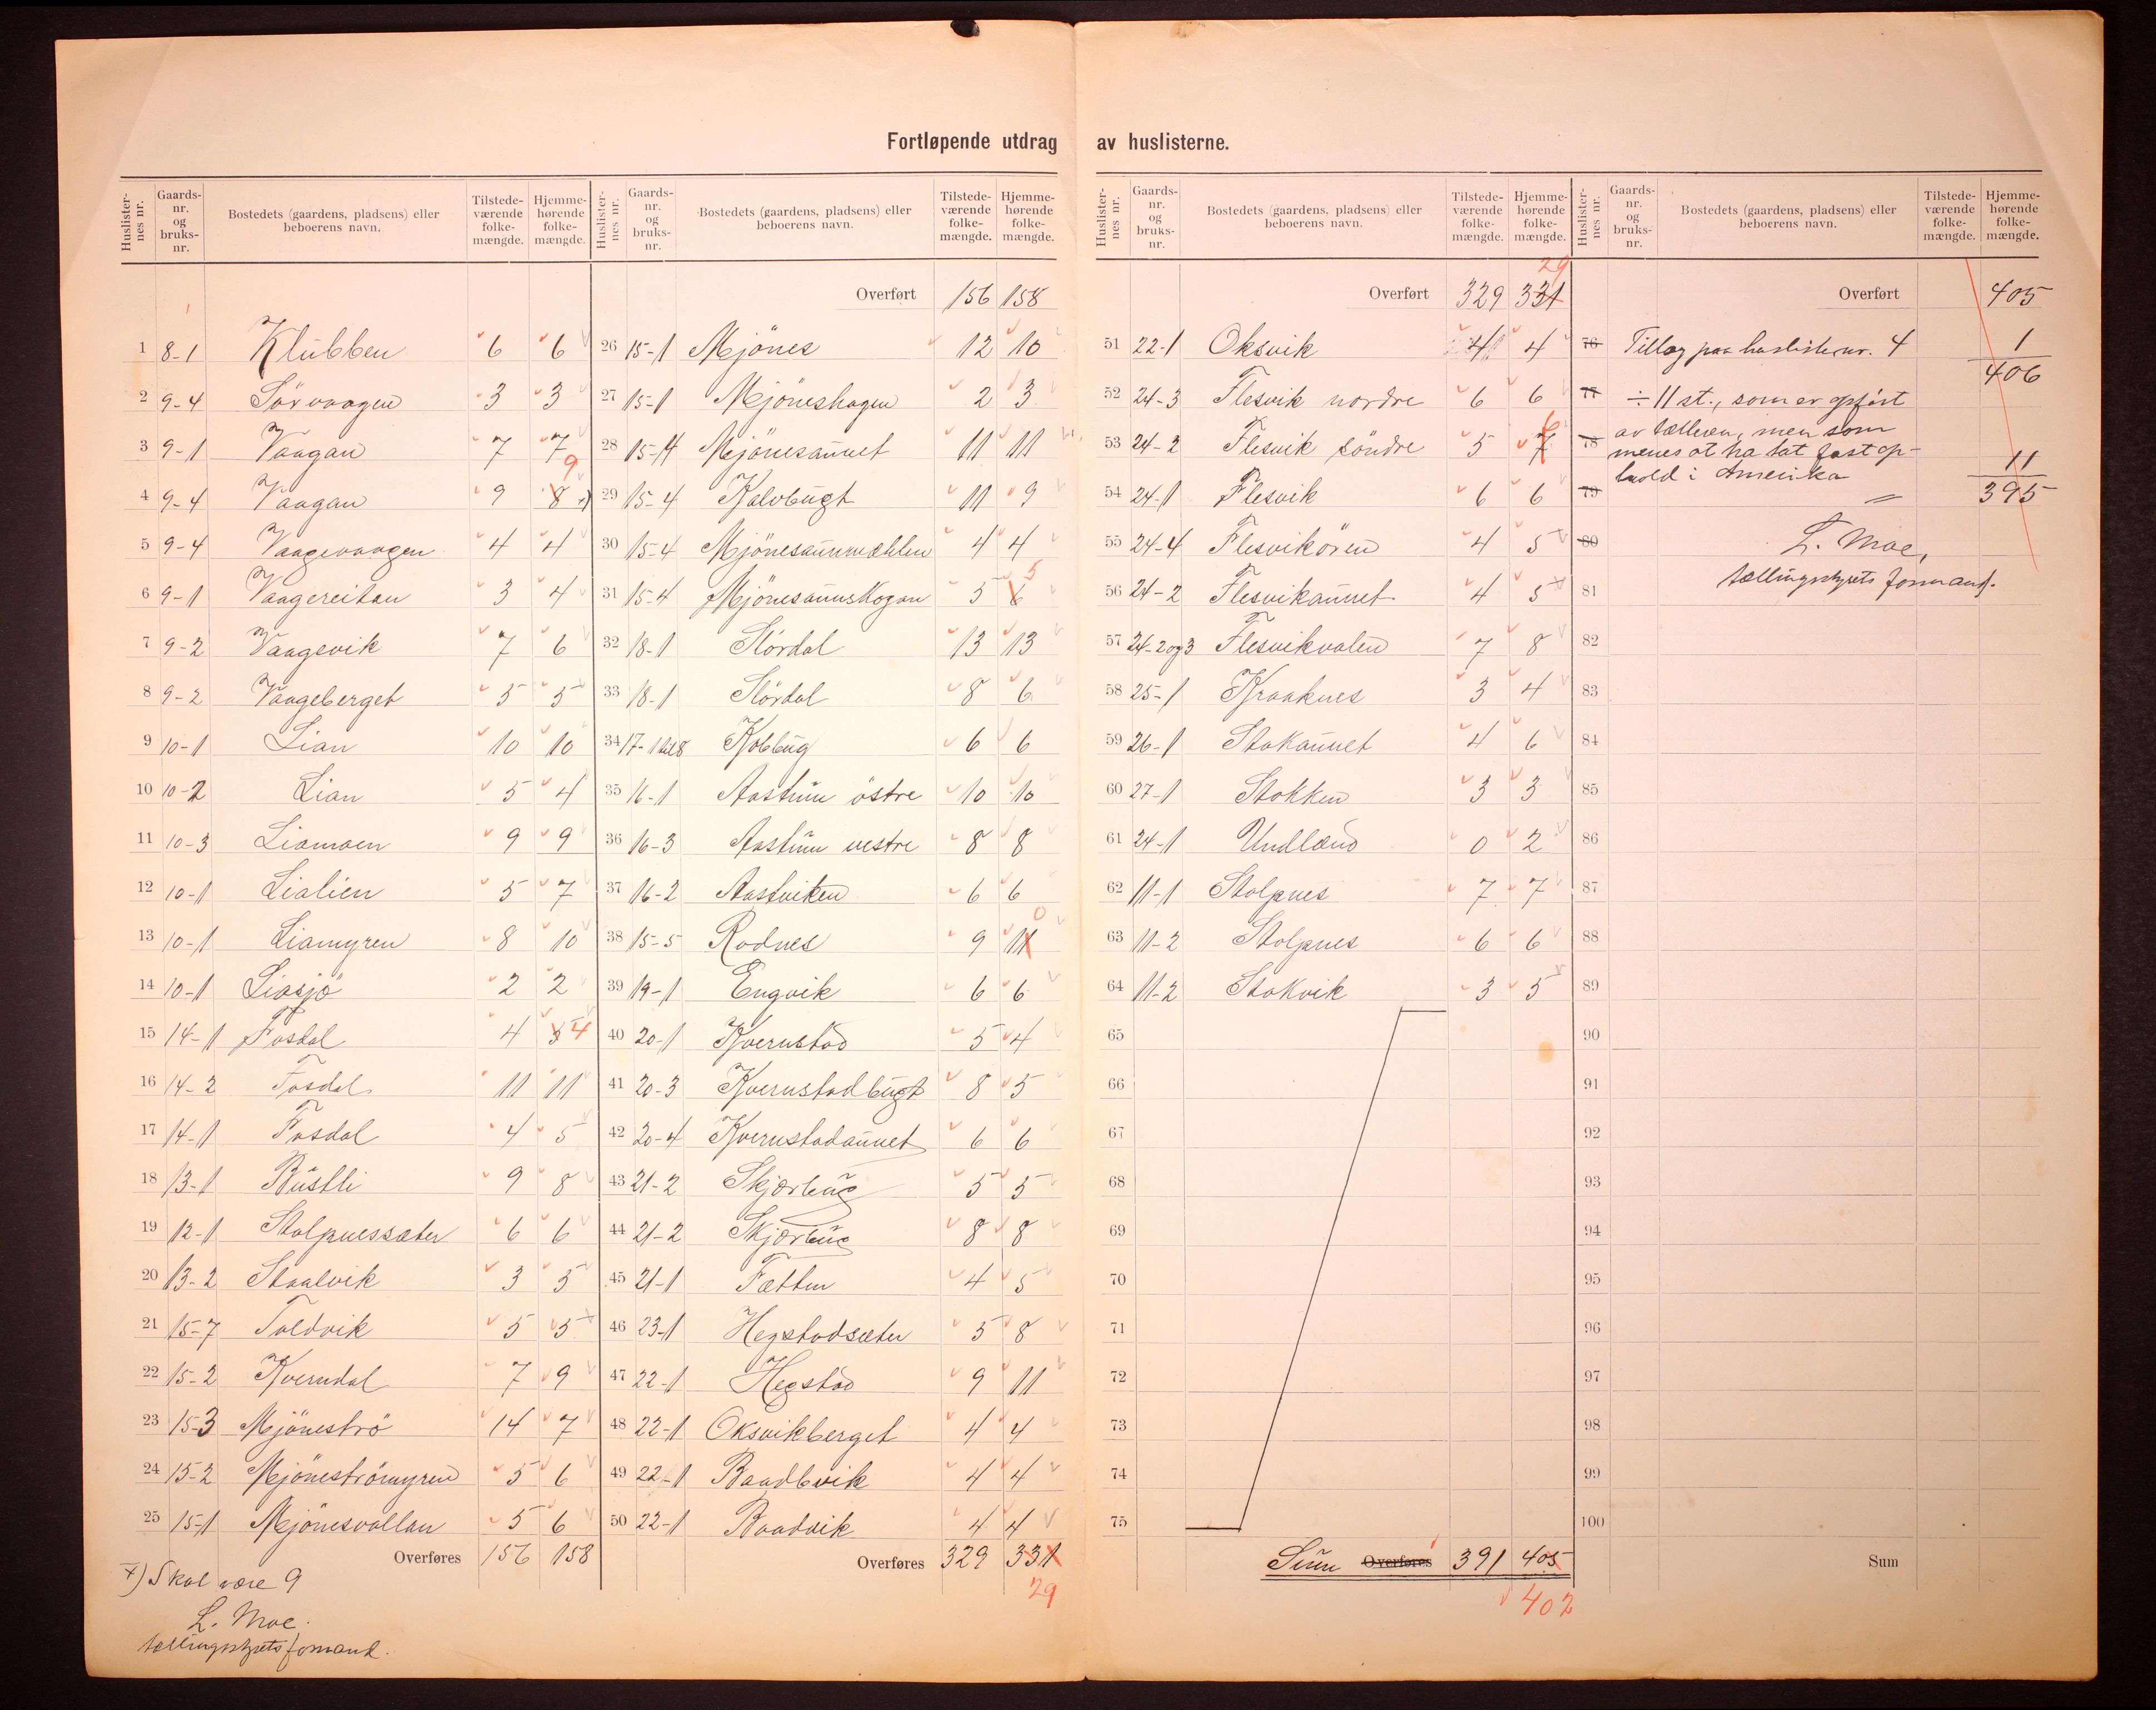 Fortløpende utdrag av huslisterne.
Huslister-nes nr. | Gaards-nr. og bruks-nr. | Bostedets (gaardens, pladsens) eller beboerens navn. | Tilstede-værende folke-mængde. | Hjemme-hørende folke-mængde.
1 8-1 Klubben 6 6
2 9-4 Sörvaagen 3 3
3 9-1 Vaagan 7 7
4 9-4 Vaagan 9 8 9 x)
5 9-4 Vaagevaagen 4 4
6 9-1 Vaagereitan 3 4
7 9-2 Vaagevik 7 6
8 9-2 Vaageberget 5 5
9 10-1 Lian 10 10
10 10-2 Lian 5 4
11 10-3 Liamoen 9 9
12 10-1 Lialien 5 7
13 10-1 Liamyren 8 10
14 10-1 Liasjö 2 2
15 14-1 Fosdal 4 5 4
16 14-2 Fosdal 11 11
17 14-1 Fosdal 4 5
18 13-1 Büstli 9 8
19 12-1 Stolpnessæter 6 6
20 13-2 Staalvik 3 5
21 15-7 Toldvik 5 5
22 15-2 Kverndal 7 9
23 15-3 Mjöneströ 14 7
24 15-2 Mjöneströmyren 5 6
25 15-1 Mjönesvollan 5 6
Overføres 156 158
x) Skal være 9
L. Moe.
tællingsstyrets formand.
Huslister-nes nr. | Gaards-nr. og bruks-nr. | Bostedets (gaardens, pladsens) eller beboerens navn. | Tilstede-værende folke-mængde. | Hjemme-hørende folke-mængde.
Overført 156 158
26 15-1 Mjönes 12 10
27 15-1 Mjöneshagen 2 3
28 15-4 Mjönesaunet 11 11
29 15-4 Kalvbugt 11 9
30 15-4 Mjönesaunmæhlen 4 4
31 15-4 Mjönesaunskogan 5 6 5
32 18-1 Slördal 13 13
33 18-1 Slördal 8 6
34 17-1 til 8 Kobbug 6 6
35 16-1 Aastum östre 10 10
36 16-3 Aastum vestre 8 8
37 16-2 Aastviken 6 6
38 15-5 Rodnes 9 11 0
39 19-1 Engvik 6 6
40 20-1 Kvernstad 5 4
41 20-3 Kvernstadbugt 8 5
42 20-4 Kvernstadaunet 6 6
43 21-2 Skjærbug 5 5
44 21-2 Skjærbug 8 8
45 21-1 Fætten 4 5
46 23-1 Hegstadsæter 5 8
47 22-1 Hegstad 9 11
48 22-1 Oksvikberget 4 4
49 22-1 Baadbvik 4 4
50 22-1 Baadvik 4 4
Overføres 329 331
29
Huslister-nes nr. | Gaards-nr. og bruks-nr. | Bostedets (gaardens, pladsens) eller beboerens navn. | Tilstede-værende folke-mængde. | Hjemme-hørende folke-mængde.
29
Overført 329 331
51 22-1 Oksvik 4 4
52 24-3 Flesvik nordre 6 6
53 24-2 Flesvik söndre 5 7 6
54 24-1 Flesvik 6 6
55 24-4 Flesvikören 4 5
56 24-2 Flesvikaunet 4 5
57 24-2 og 3 Flesvikvalen 7 8
58 25-1 Kraaknes 3 4
59 26-1 Stokaunet 4 6
60 27-1 Stokken 3 3
61 24-1 Undland 0 2
62 11-1 Stolpnes 7 7
63 11-2 Stolpnes 6 6
64 11-2 Stokvik 3 5
65
66
67
68
69
70
71
72
73
74
75
Sum Overføres 391 405
402
Huslister-nes nr. | Gaards-nr. og bruks-nr. | Bostedets (gaardens, pladsens) eller beboerens navn. | Tilstede-værende folke-mængde. | Hjemme-hørende folke-mængde.
Overført 405
76 Tillæg paa huslistenr. 4 1
406
77 ÷ 11 st., som er opfört
78 av tælleren, men som
menes at ha tat fast op-
hold i Amerika 11
79 395
80 L. Moe,
tællingsstyrets formand.
81
82
83
84
85
86
87
88
89
90
91
92
93
94
95
96
97
98
99
100
Sum